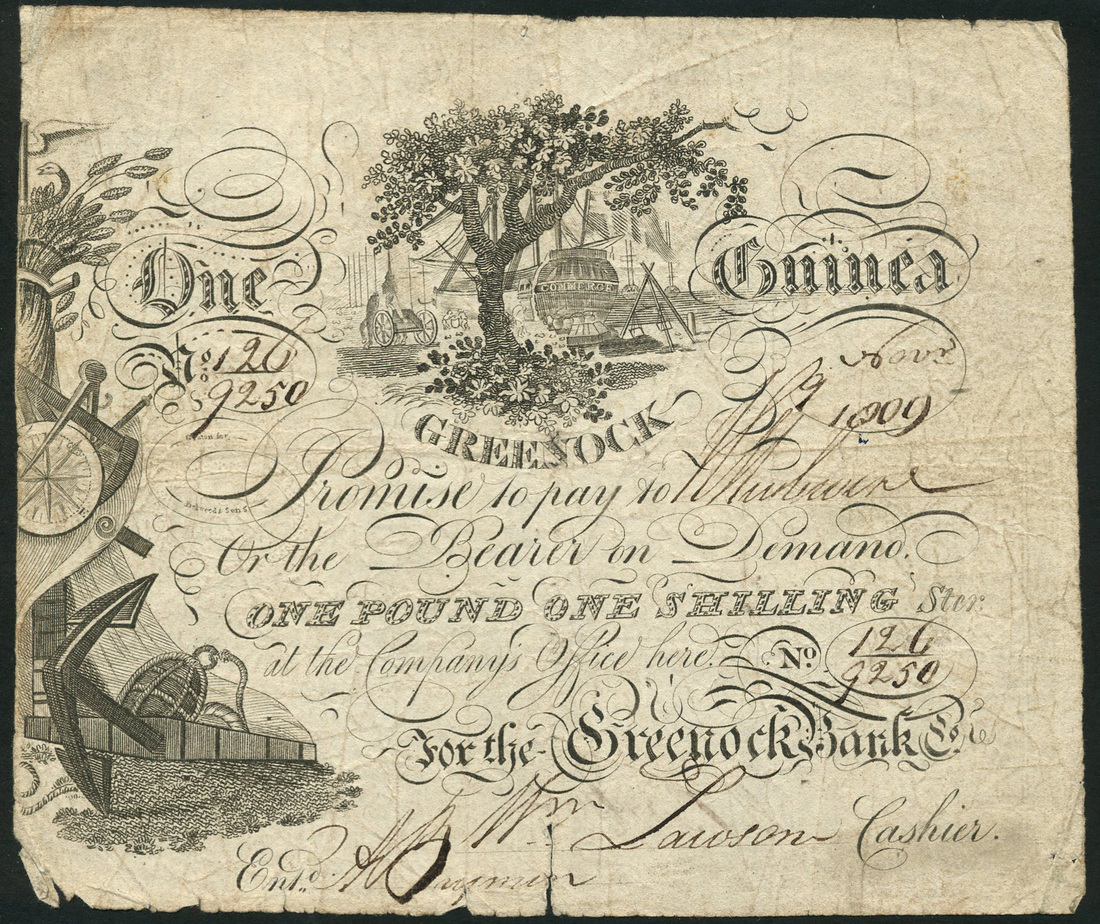 COMMERCE
One Guinea
No. 126
9250
Novr
19
1809
GREENOCK
Promise to pay to
Or the Bearer on Demand.
ONE POUND ONE SHILLING Ster:
at the Company's Office here.
No 126
9250
For the Greenock Bank Co.
Wm Lawson Cashier.
Entd.